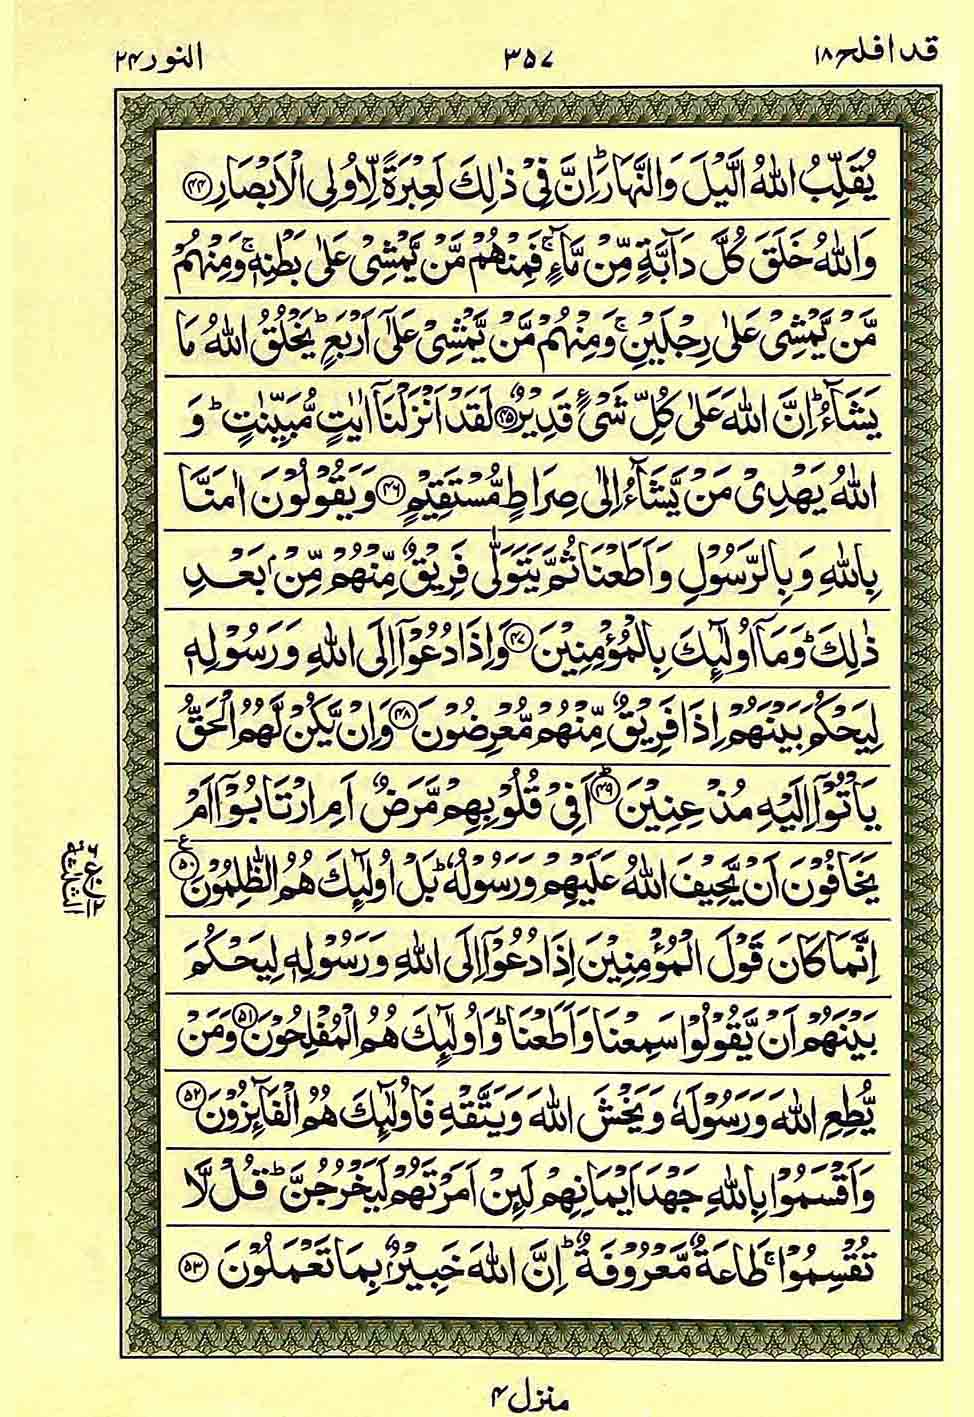 قد افلح ١٨
٣٥٧
النور ٢٤
يُقَلِّبُ اللّٰهُ الَّيْلَ وَالنَّهَارَ ؕ اِنَّ فِيْ ذٰلِكَ لَعِبْرَةً لِّاُولِي الْاَبْصَارِ ﴿٤٤﴾
وَاللّٰهُ خَلَقَ كُلَّ دَآبَّةٍ مِّنْ مَّآءٍ ۚ فَمِنْهُمْ مَّنْ يَّمْشِيْ عَلٰى بَطْنِهٖ ۚ وَمِنْهُمْ
مَّنْ يَّمْشِيْ عَلٰى رِجْلَيْنِ ۚ وَمِنْهُمْ مَّنْ يَّمْشِيْ عَلٰٓى اَرْبَعٍ ؕ يَخْلُقُ اللّٰهُ مَا
يَشَآءُ ؕ اِنَّ اللّٰهَ عَلٰى كُلِّ شَيْءٍ قَدِيْرٌ ﴿٤٥﴾ لَقَدْ اَنْزَلْنَآ اٰيٰتٍ مُّبَيِّنٰتٍ ؕ وَ
اللّٰهُ يَهْدِيْ مَنْ يَّشَآءُ اِلٰى صِرَاطٍ مُّسْتَقِيْمٍ ﴿٤٦﴾ وَيَقُوْلُوْنَ اٰمَنَّا
بِاللّٰهِ وَبِالرَّسُوْلِ وَاَطَعْنَا ثُمَّ يَتَوَلّٰى فَرِيْقٌ مِّنْهُمْ مِّنْۢ بَعْدِ
ذٰلِكَ ؕ وَمَآ اُولٰٓئِكَ بِالْمُؤْمِنِيْنَ ﴿٤٧﴾ وَاِذَا دُعُوْٓا اِلَى اللّٰهِ وَرَسُوْلِهٖ
لِيَحْكُمَ بَيْنَهُمْ اِذَا فَرِيْقٌ مِّنْهُمْ مُّعْرِضُوْنَ ﴿٤٨﴾ وَاِنْ يَّكُنْ لَّهُمُ الْحَقُّ
يَاْتُوْٓا اِلَيْهِ مُذْعِنِيْنَ ؕ﴿٤٩﴾ اَفِيْ قُلُوْبِهِمْ مَّرَضٌ اَمِ ارْتَابُوْٓا اَمْ
يَخَافُوْنَ اَنْ يَّحِيْفَ اللّٰهُ عَلَيْهِمْ وَرَسُوْلُهٗ ؕ بَلْ اُولٰٓئِكَ هُمُ الظّٰلِمُوْنَ ﴿٥٠﴾ ع
اِنَّمَا كَانَ قَوْلَ الْمُؤْمِنِيْنَ اِذَا دُعُوْٓا اِلَى اللّٰهِ وَرَسُوْلِهٖ لِيَحْكُمَ
بَيْنَهُمْ اَنْ يَّقُوْلُوْا سَمِعْنَا وَاَطَعْنَا ؕ وَاُولٰٓئِكَ هُمُ الْمُفْلِحُوْنَ ﴿٥١﴾ وَمَنْ
يُّطِعِ اللّٰهَ وَرَسُوْلَهٗ وَيَخْشَ اللّٰهَ وَيَتَّقْهِ فَاُولٰٓئِكَ هُمُ الْفَآئِزُوْنَ ﴿٥٢﴾
وَاَقْسَمُوْا بِاللّٰهِ جَهْدَ اَيْمَانِهِمْ لَئِنْ اَمَرْتَهُمْ لَيَخْرُجُنَّ ؕ قُلْ لَّا
تُقْسِمُوْا ۚ طَاعَةٌ مَّعْرُوْفَةٌ ؕ اِنَّ اللّٰهَ خَبِيْرٌۢ بِمَا تَعْمَلُوْنَ ﴿٥٣﴾
منزل ٤